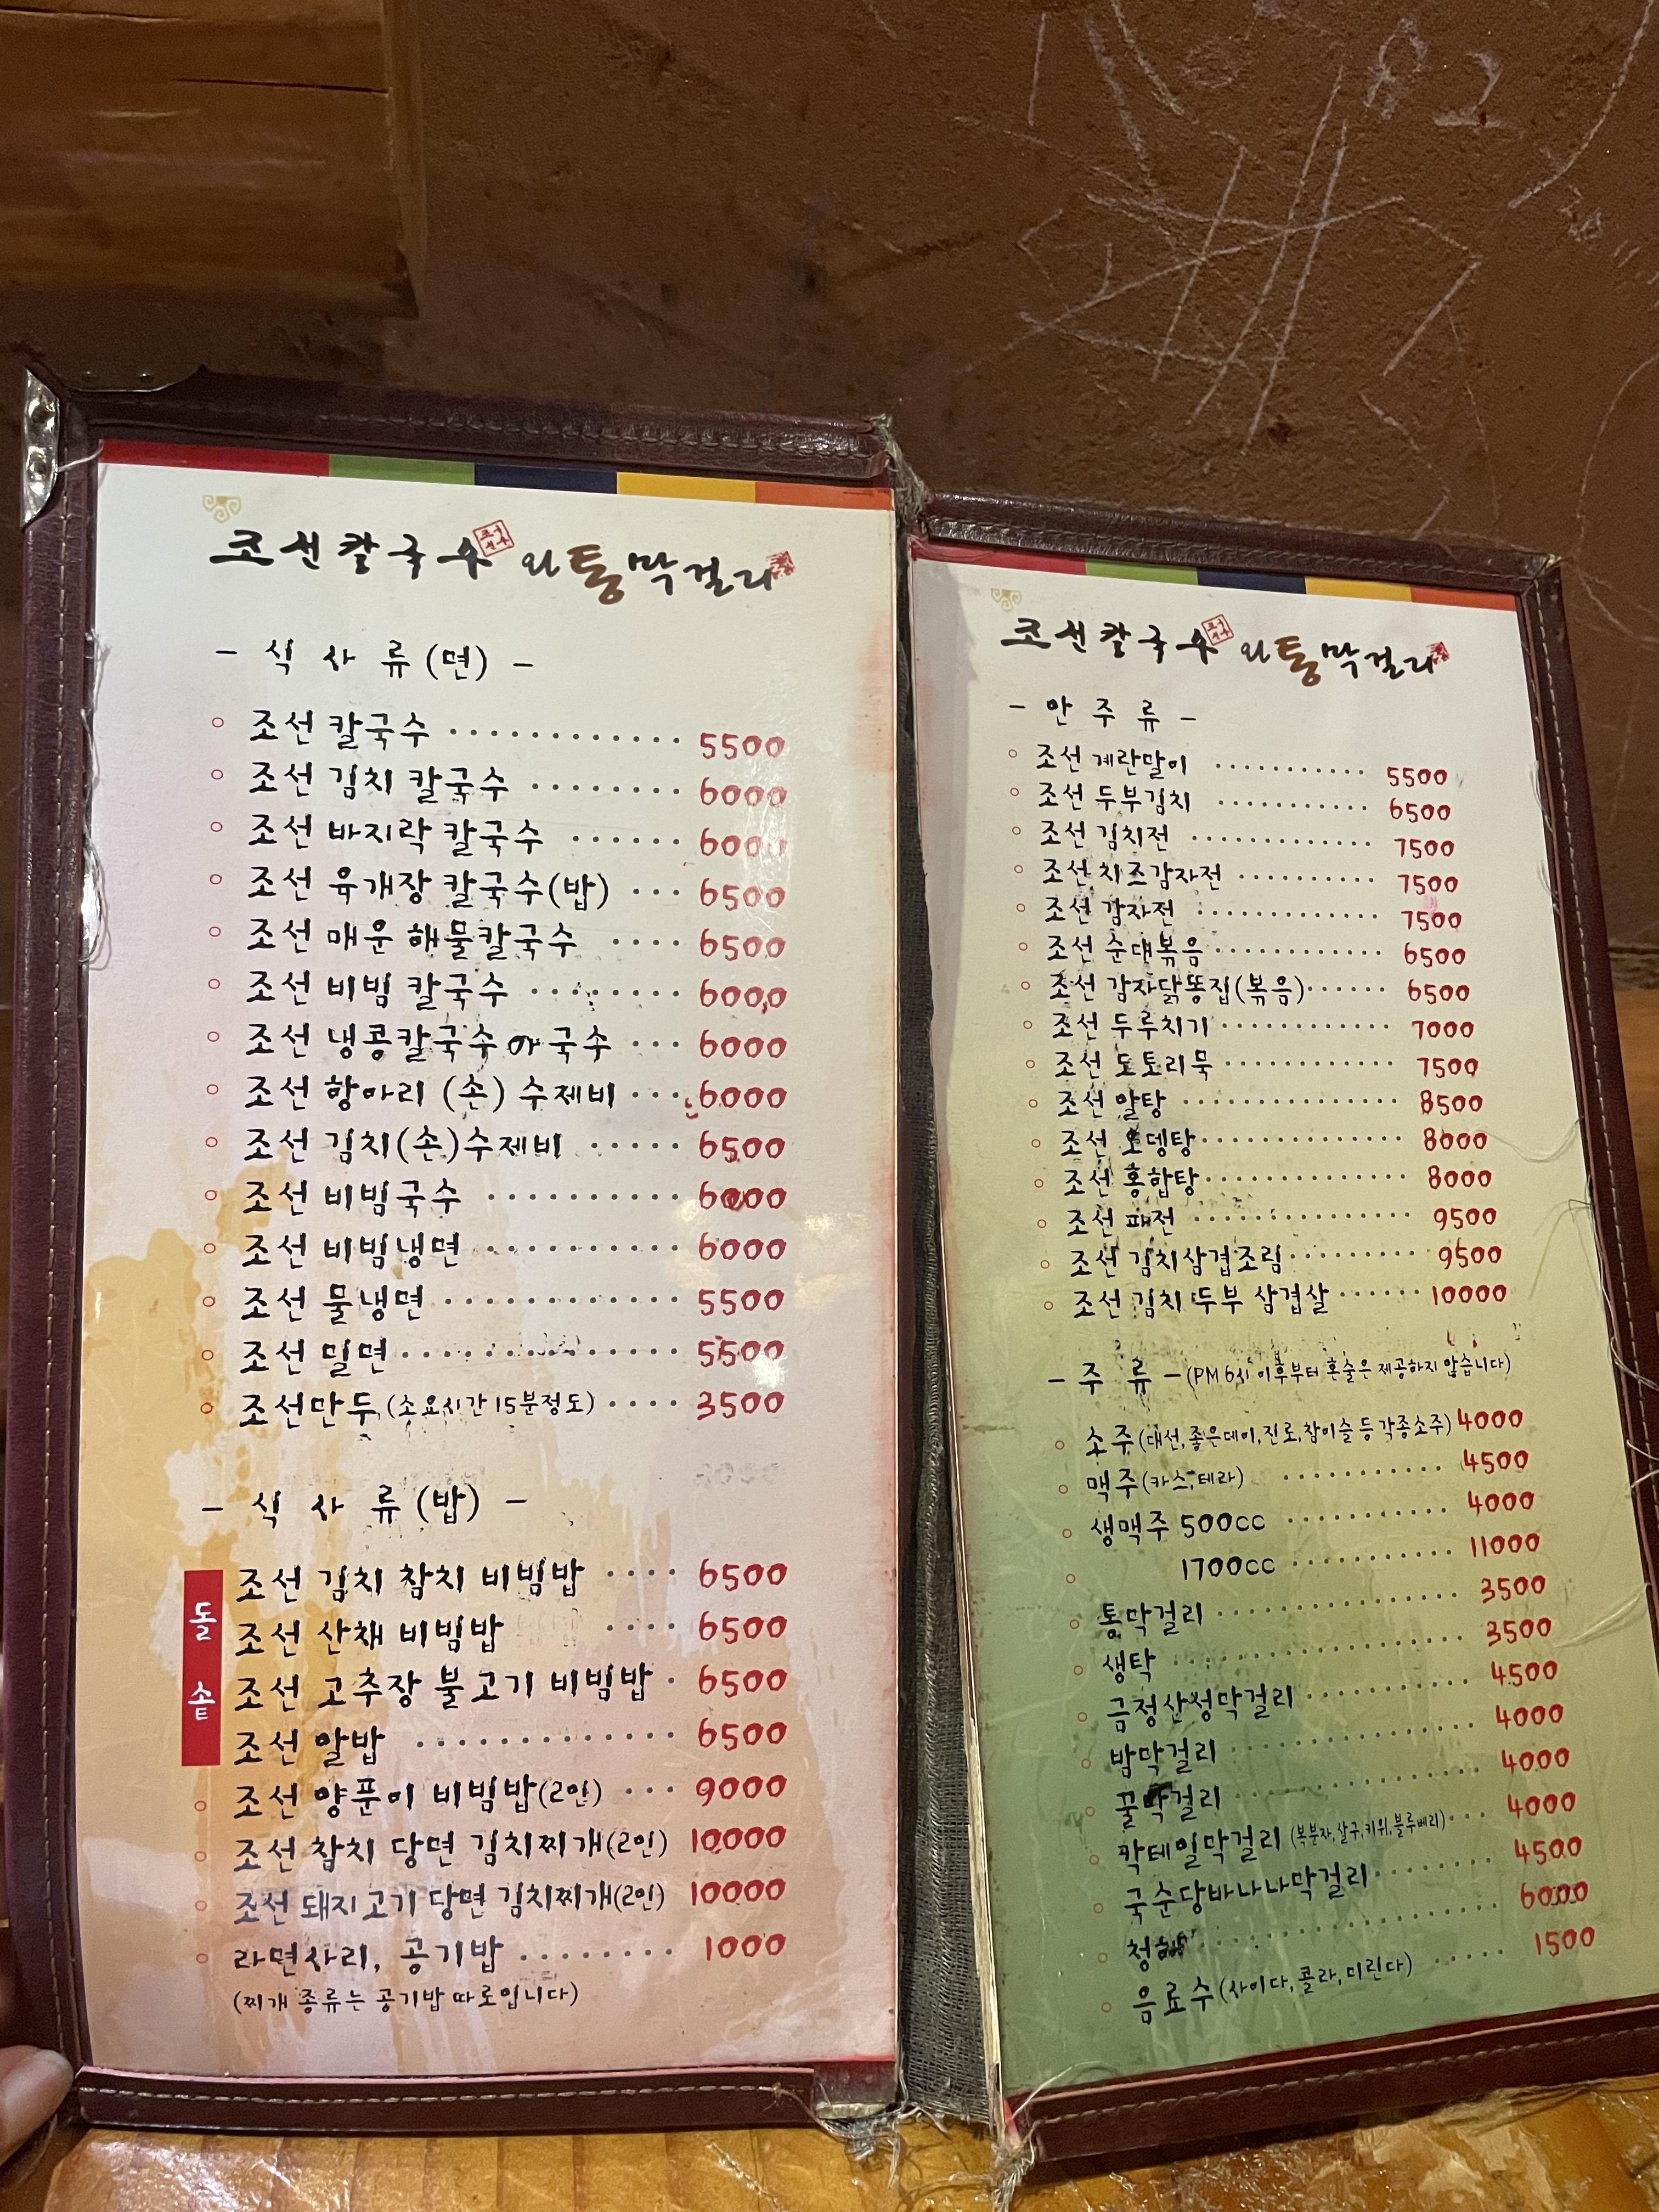 조선칼국수와통막걸리
- 식 사 류 (면) -
조선 칼국수 ············ 5500
조선 김치 칼국수 ········ 6000
조선 바지락 칼국수 ······ 6000
조선 육개장 칼국수(밥) ··· 6500
조선 매운 해물칼국수 ···· 6500
조선 비빔 칼국수 ········ 6000
조선 냉콩칼국수 or 국수 ··· 6000
조선 항아리 (손) 수제비 ··· 6000
조선 김치(손)수제비 ····· 6500
조선 비빔국수 ·········· 6000
조선 비빔냉면 ·········· 6000
조선 물냉면 ············ 5500
조선 밀면 ·············· 5500
조선만두 (소요시간 15분정도) ···· 3500
- 식 사 류 (밥) -
돌솥
조선 김치 참치 비빔밥 ···· 6500
조선 산채 비빔밥 ···· 6500
조선 고추장 불고기 비빔밥 · 6500
조선 알밥 ············· 6500
조선 양푼이 비빔밥(2인) ··· 9000
조선 참치 당면 김치찌개(2인) 10000
조선 돼지고기 당면 김치찌개(2인) 10000
라면사리, 공기밥 ········ 1000
(찌개 종류는 공기밥 따로입니다)
조선칼국수와통막걸리
- 안 주 류 -
조선 계란말이 ··········· 5500
조선 두부김치 ··········· 6500
조선 김치전 ············· 7500
조선 치즈감자전 ·········· 7500
조선 감자전 ············· 7500
조선 순대볶음 ············ 6500
조선 감자닭똥집(볶음) ······ 6500
조선 두루치기 ············ 7000
조선 도토리묵 ············ 7500
조선 알탕 ··············· 8500
조선 오뎅탕 ·············· 8000
조선 홍합탕 ·············· 8000
조선 파전 ··············· 9500
조선 김치삼겹조림 ········· 9500
조선 김치 두부 삼겹살 ······ 10000
- 주 류 - (PM 6시 이후부터 혼술은 제공하지 않습니다)
소주 (대선,좋은데이,진로,참이슬 등 각종소주) 4000
맥주 (카스,테라) ··········· 4500
생맥주 500cc ············ 4000
1700cc ············ 11000
통막걸리 ················ 3500
생탁 ·················· 3500
금정산성막걸리 ··········· 4500
밤막걸리 ··············· 4000
꿀막걸리 ··············· 4000
칵테일막걸리 (복분자,살구,키위,블루베리) ··· 4000
국순당바나나막걸리 ········ 4500
청하 ·················· 6000
음료수 (사이다,콜라,미린다) ······ 1500